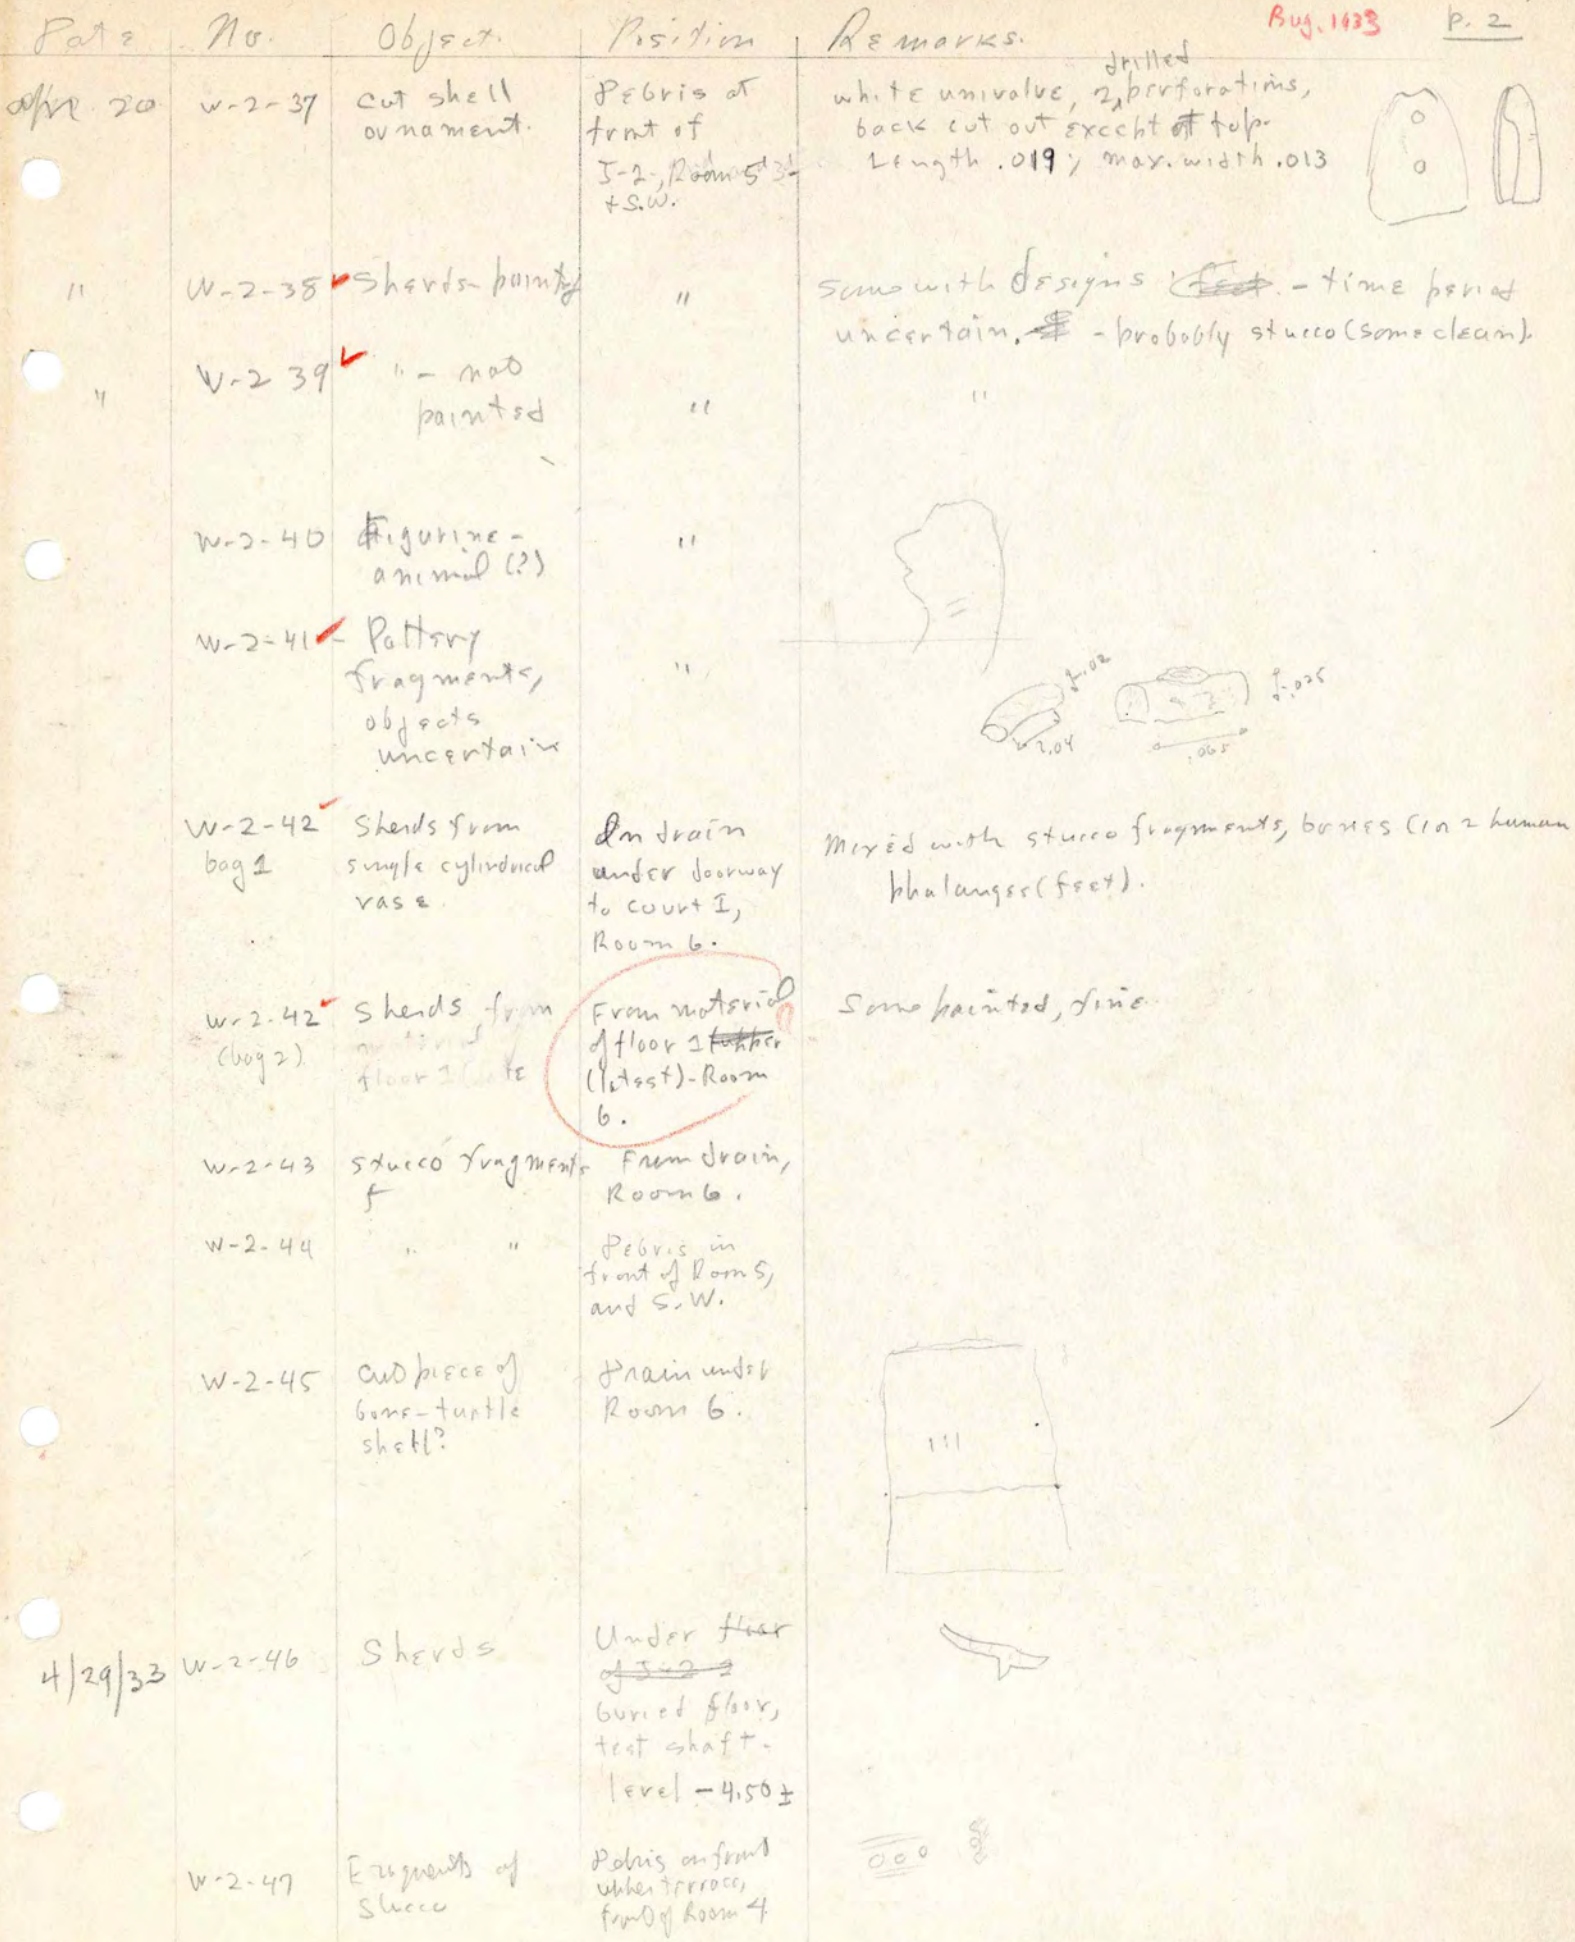 Aug. 1933 p. 2
Date No. Object. Position Remarks.
Apr. 20 W-2-37 cut shell ornament.
Debris at
front of
J-2-, Room 5
+ S.W.
drilled
white univalve, 2 perforations,
back cut out except at top.
Length .019; max. width .013
" W-2-38 Sherds - painted "
some with designs - time period
uncertain. - probably stucco (some clean).
" W-2 39 " - not
painted
" "
W-2-40 Figurine -
animal (?)
"
W-2-41 - Pottery
fragments,
objects
uncertain
"
.02
.04
.025
.065
W-2-42
bag 1
Sherds from
single cylindrical
vase.
In drain
under doorway
to court I,
Room 6.
Mixed with stucco fragments, bones (1 or 2 human
phalanges (feet).
W-2-42
(bag 2)
Sherds from
floor 1
From material
of floor 1 upper
(latest) - Room
6.
Some painted, fine
W-2-43 stucco fragments
f
From drain,
Room 6.
W-2-44 " "
Debris in
front of Room 5,
and S.W.
W-2-45 Cut piece of
bone - turtle
shell?
Drain under
Room 6.
4/29/33 W-2-46 Sherds
Under floor
of J-2
buried floor,
test shaft.
level - 4.50 ±
W-2-47 Fragments of
stucco
Debris on front
upper terrace,
front of Room 4